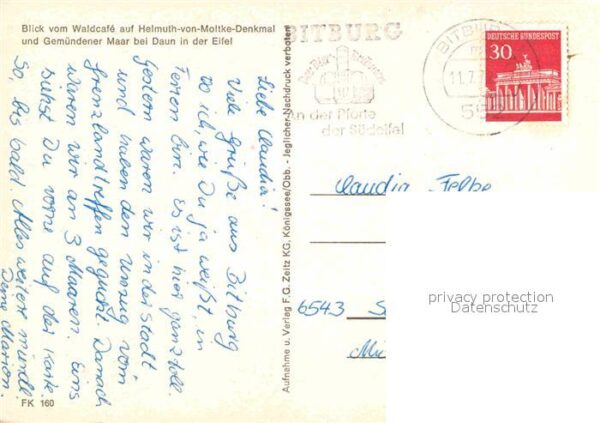 Blick vom Waldcafé auf Helmuth-von-Moltke-Denkmal
und Gemündener Maar bei Daun in der Eifel
Liebe Claudia!
Viele Grüße aus Bitburg
wo ich, wie Du ja weißt, in
Ferien bin. Es ist hier ganz toll.
Gestern waren wir in der Stadt
und haben den Umzug vom
Grenzlandtreffen geguckt. Danach
waren wir an 3 Maaren. Eins
siehst Du vorne auf der Karte.
So, bis bald. Alles weitere mündl.
Deine Marion.
FK 160
Aufnahme u. Verlag F.G. Zeitz KG, Königssee/Obb. - Jeglicher Nachdruck verboten
BITBURG
An der Pforte
der Südeifel
BITBURG
11.7.
DEUTSCHE BUNDESPOST
30
Claudia Felbe
6543 S
privacy protection
Datenschutz